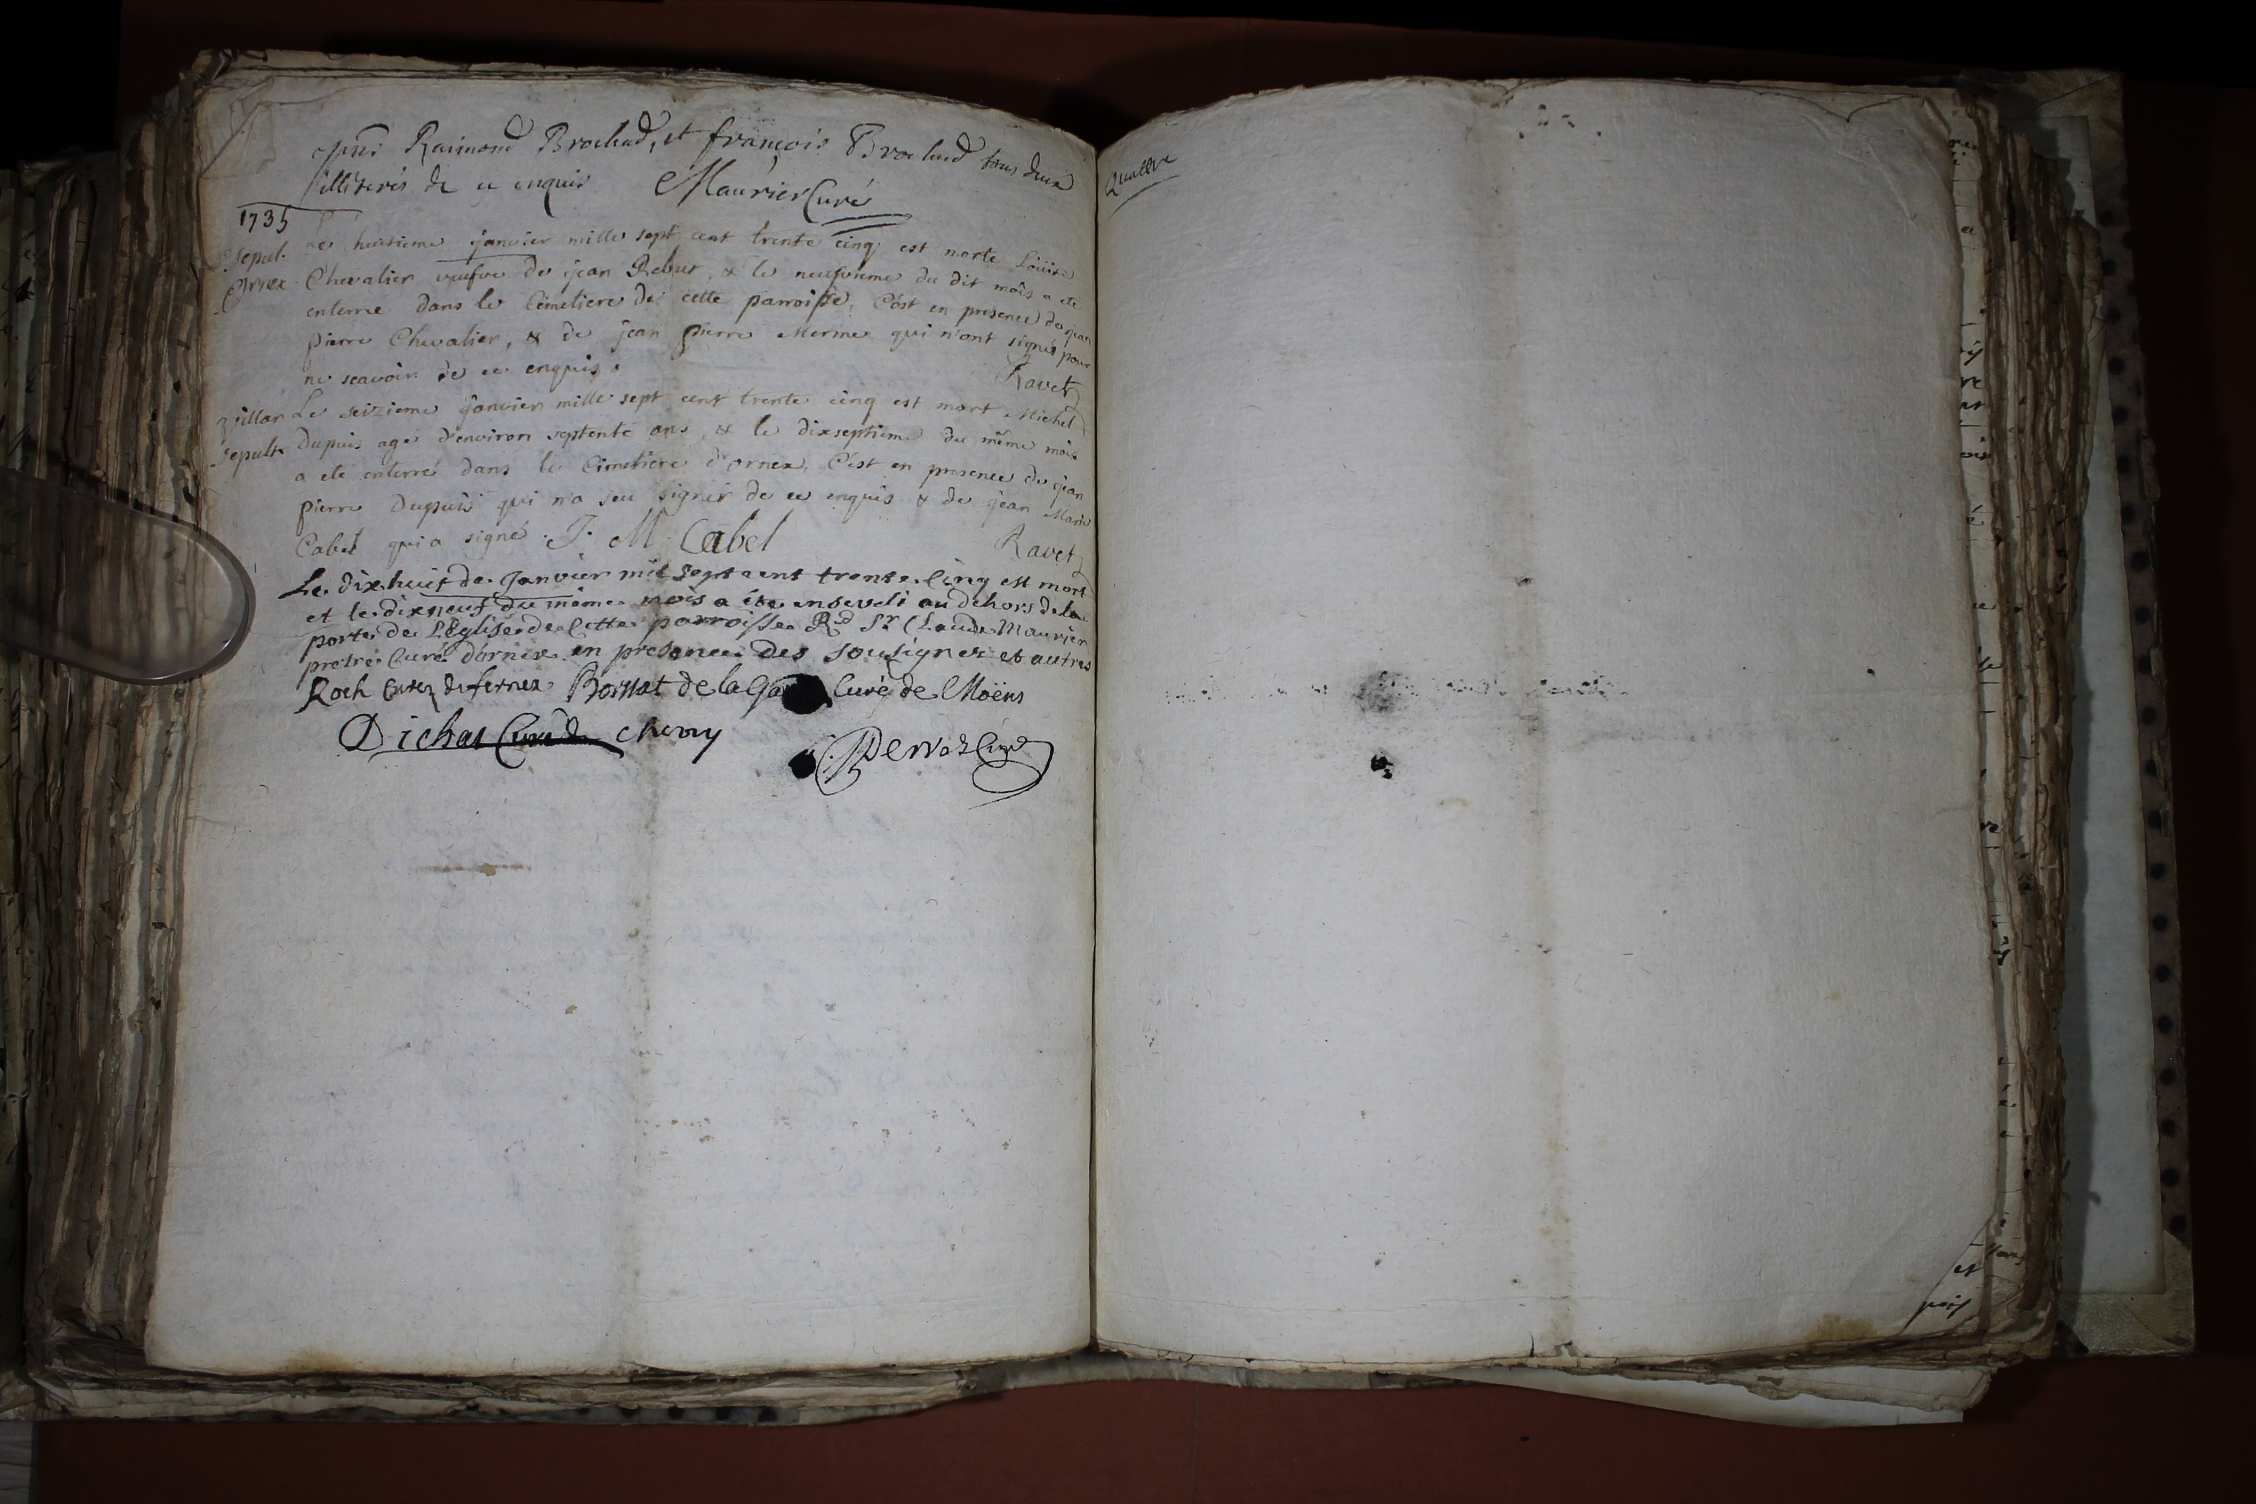 Raimond Brochud, et françois Brochud tous deux
illiterés de ce enquis Maurier Curé
1735
Sepul. Le huitieme janvier mille sept cent trente cinq est morte Loüise
Ornex Chevalier veufve de jean Rebut, & le neufvieme du dit mois a ete
enterrée dans le Cimetiere de cette parroisse, C'est en presence de jean
pierre Chevalier, & de jean pierre Merme qui n'ont signés pour
ne scavoir de ce enquis. Ravet
Le seizieme janvier mille sept cent trente cinq est mort Michel
sepult. Dupuis agé d'environ septente ans, & le dixseptieme du même mois
a eté enterré dans le Cimetiere d'ornex, C'est en presence de jean
pierre Dupuis qui n'a sçu signer de ce enquis & de jean Marie
Cabel qui a signé. J. M. Cabel Ravet
Le dix huit de Janvier mil sept cent trente Cinq est mort
et le dixneuf du même mois a ete enseveli au dehors de la
porte de L'Eglise de Cette parroisse Rd Sr Claude Maurier
pretre Curé d'ornex en presence des Sousignez et autres
Roch Curez de fernex Boissat de la Curé de Moëns
Dichat Curé de Chevry